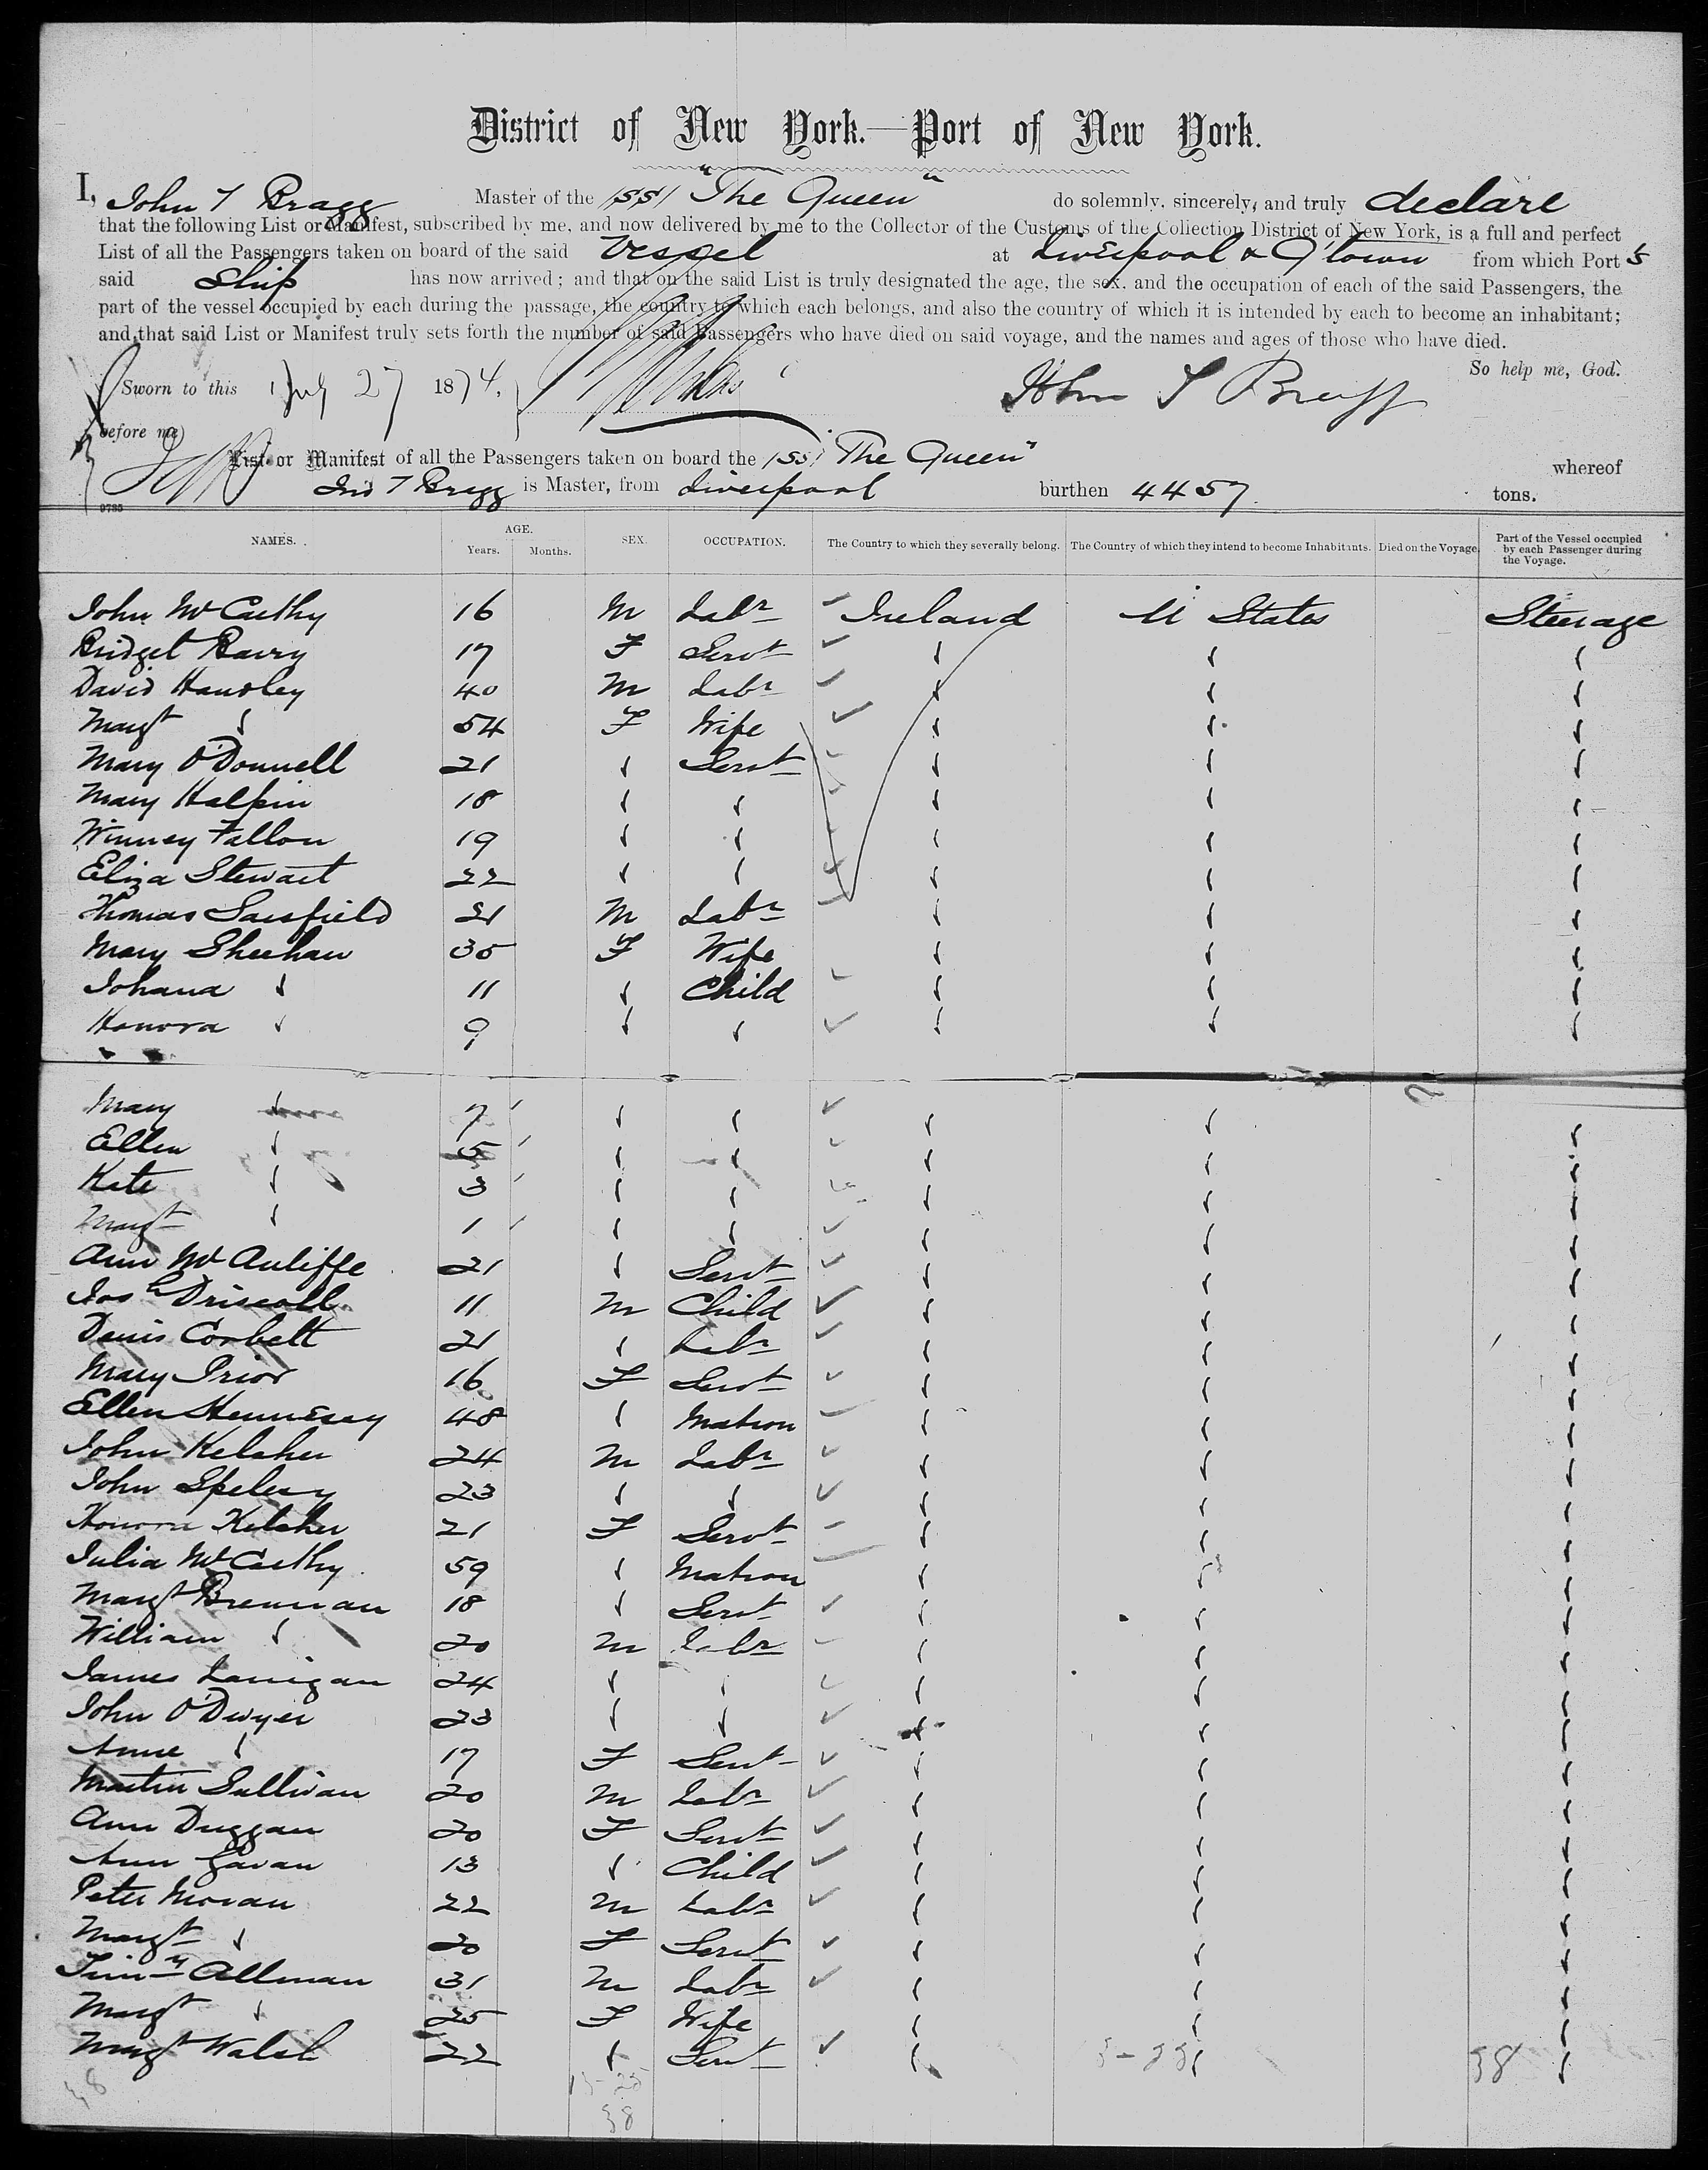 District of New York.—Port of New York.
I, John T Bragg Master of the (SS) "The Queen" do solemnly, sincerely, and truly declare
that the following List or Manifest, subscribed by me, and now delivered by me to the Collector of the Customs of the Collection District of New York, is a full and perfect
List of all the Passengers taken on board of the said Vessel at Liverpool & Q'town from which Ports
said Ship has now arrived; and that on the said List is truly designated the age, the sex, and the occupation of each of the said Passengers, the
part of the vessel occupied by each during the passage, the country to which each belongs, and also the country of which it is intended by each to become an inhabitant;
and that said List or Manifest truly sets forth the number of said Passengers who have died on said voyage, and the names and ages of those who have died.
So help me, God.
Sworn to this July 27 1874.
John T Bragg
before me
List or Manifest of all the Passengers taken on board the (SS) "The Queen" whereof
Jno T Bragg is Master, from Liverpool burthen 4457 tons.
9785
NAMES. AGE. Years. Months. SEX. OCCUPATION. The Country to which they severally belong. The Country of which they intend to become Inhabitants. Died on the Voyage. Part of the Vessel occupied by each Passenger during the Voyage.
John McCarthy 16 M Labr Ireland U States Steerage
Bridget Barry 17 F Servt
David Handley 40 M Labr
Margt 54 F Wife
Mary O'Donnell 21 Servt
Mary Halpin 18
Winney Fallon 19
Eliza Stewart 22
Thomas Sarsfield 21 M Labr
Mary Sheehan 35 F Wife
Johana 11 Child
Honora 9
Mary 7
Ellen 5
Kate 3
Margt 1
Ann McAuliffe 21 Servt
Josh Driscoll 11 M Child
Denis Corbett 21 Labr
Mary Prior 16 F Servt
Ellen Hennessy 48 Matron
John Keleher 24 M Labr
John Spelesy 23
Honora Keleher 21 F Servt
Julia McCarthy 59 Matron
Margt Brennan 18 Servt
William 20 M Labr
James Lanigan 24
John O'Dwyer 23
Anne 17 F Servt
Martin Sullivan 20 M Labr
Ann Duggan 20 F Servt
Ann Gavan 13 Child
Peter Moran 22 M Labr
Margt 20 F Servt
Timy Allman 31 M Labr
Margt 25 F Wife
Margt Walsh 22 Servt
38
38